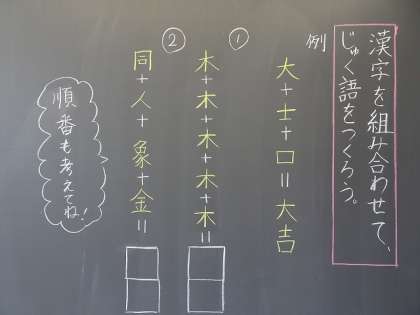 漢字を組み合わせて、
じゅく語をつくろう。
例
大+士+口=大吉
①
木+木+木+木+木=
②
同+人+象+金=
順番も
考えてね!